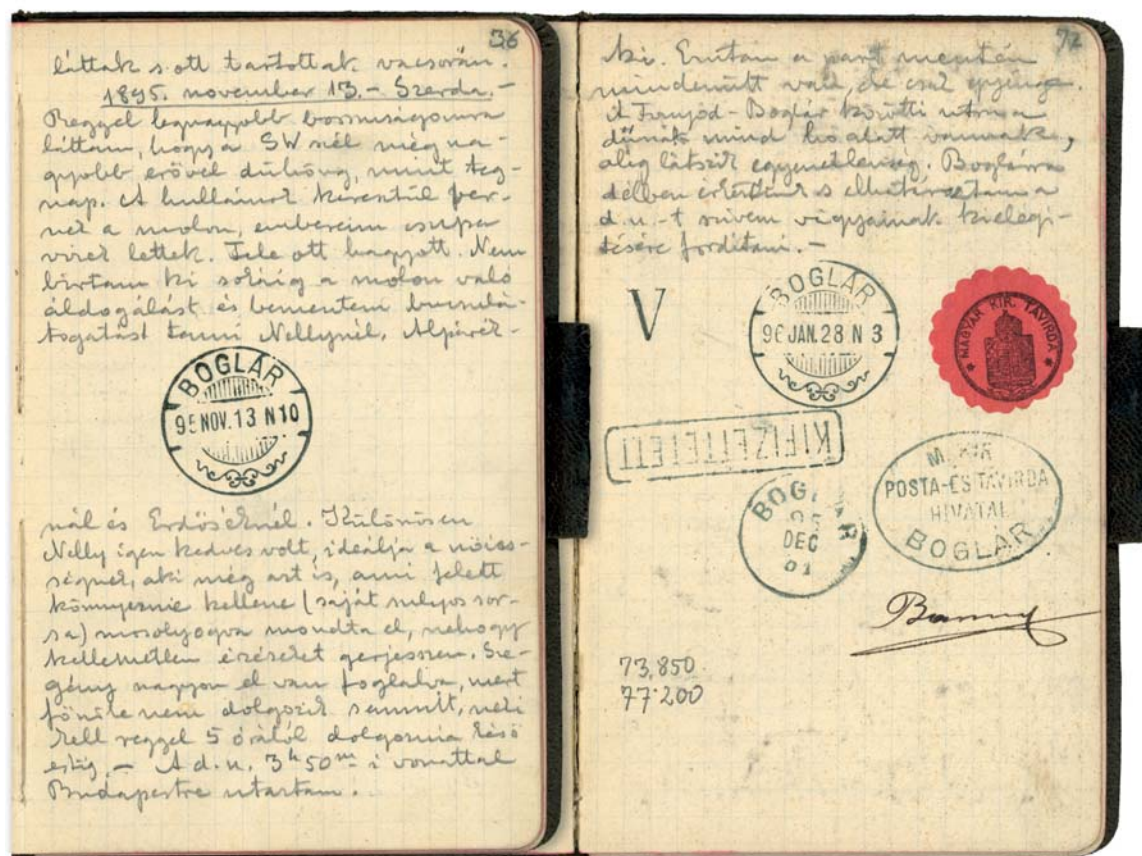 36
láttak s ott tartottak vacsorán.
1895. november 13. – Szerda. –
Reggel legnagyobb bosszúságomra
láttam, hogy a SW szél még na-
gyobb erővel dühöng, mint teg-
nap. A hullámok keresztül ver-
nek a molon, embereim csupa
vizek lettek. Jele ott hagyott. Nem
birtam ki sokáig a molon való
áldogálást és bementem búcsúlá-
togatást tenni Nellynél,
BOGLÁR
95 NOV. 13 N 10
nál és Erdőséknél. Különösen
Nelly igen kedves volt, ideálja a nőies-
ségnek, aki még azt is, ami felett
könnyeznie kellene (saját súlyos sor-
sa) mosolyogva mondta el, nehogy
kellemetlen érzéseket gerjesszen. Sze-
gény nagyon el van foglalva, mert
főnöke nem dolgozik semmit, neki
kell reggel 5 órától dolgoznia késő
estig. – A d. u. 3h 50m i vonattal
Budapestre utaztam.
72
ki. Ezután a part mentén
mindenütt van, de csak gyönge.
A Fonyód - Boglár közötti uton a
dűnák mind hó alatt vannak,
alig látszik egyenetlenség. Boglárra
délben érkeztünk s elhatároztam a
d. u. -t szivem vágyainak kielégi-
tésére forditani. –
V
BOGLÁR
96 JAN. 28 N 3
MAGYAR KIR. TÁVIRDA
KIFIZETTETETT
BOGLÁR
95
DEC
01
M. KIR.
POSTA-ÉS TÁVIRDA
HIVATAL
BOGLÁR
73.850
77.200